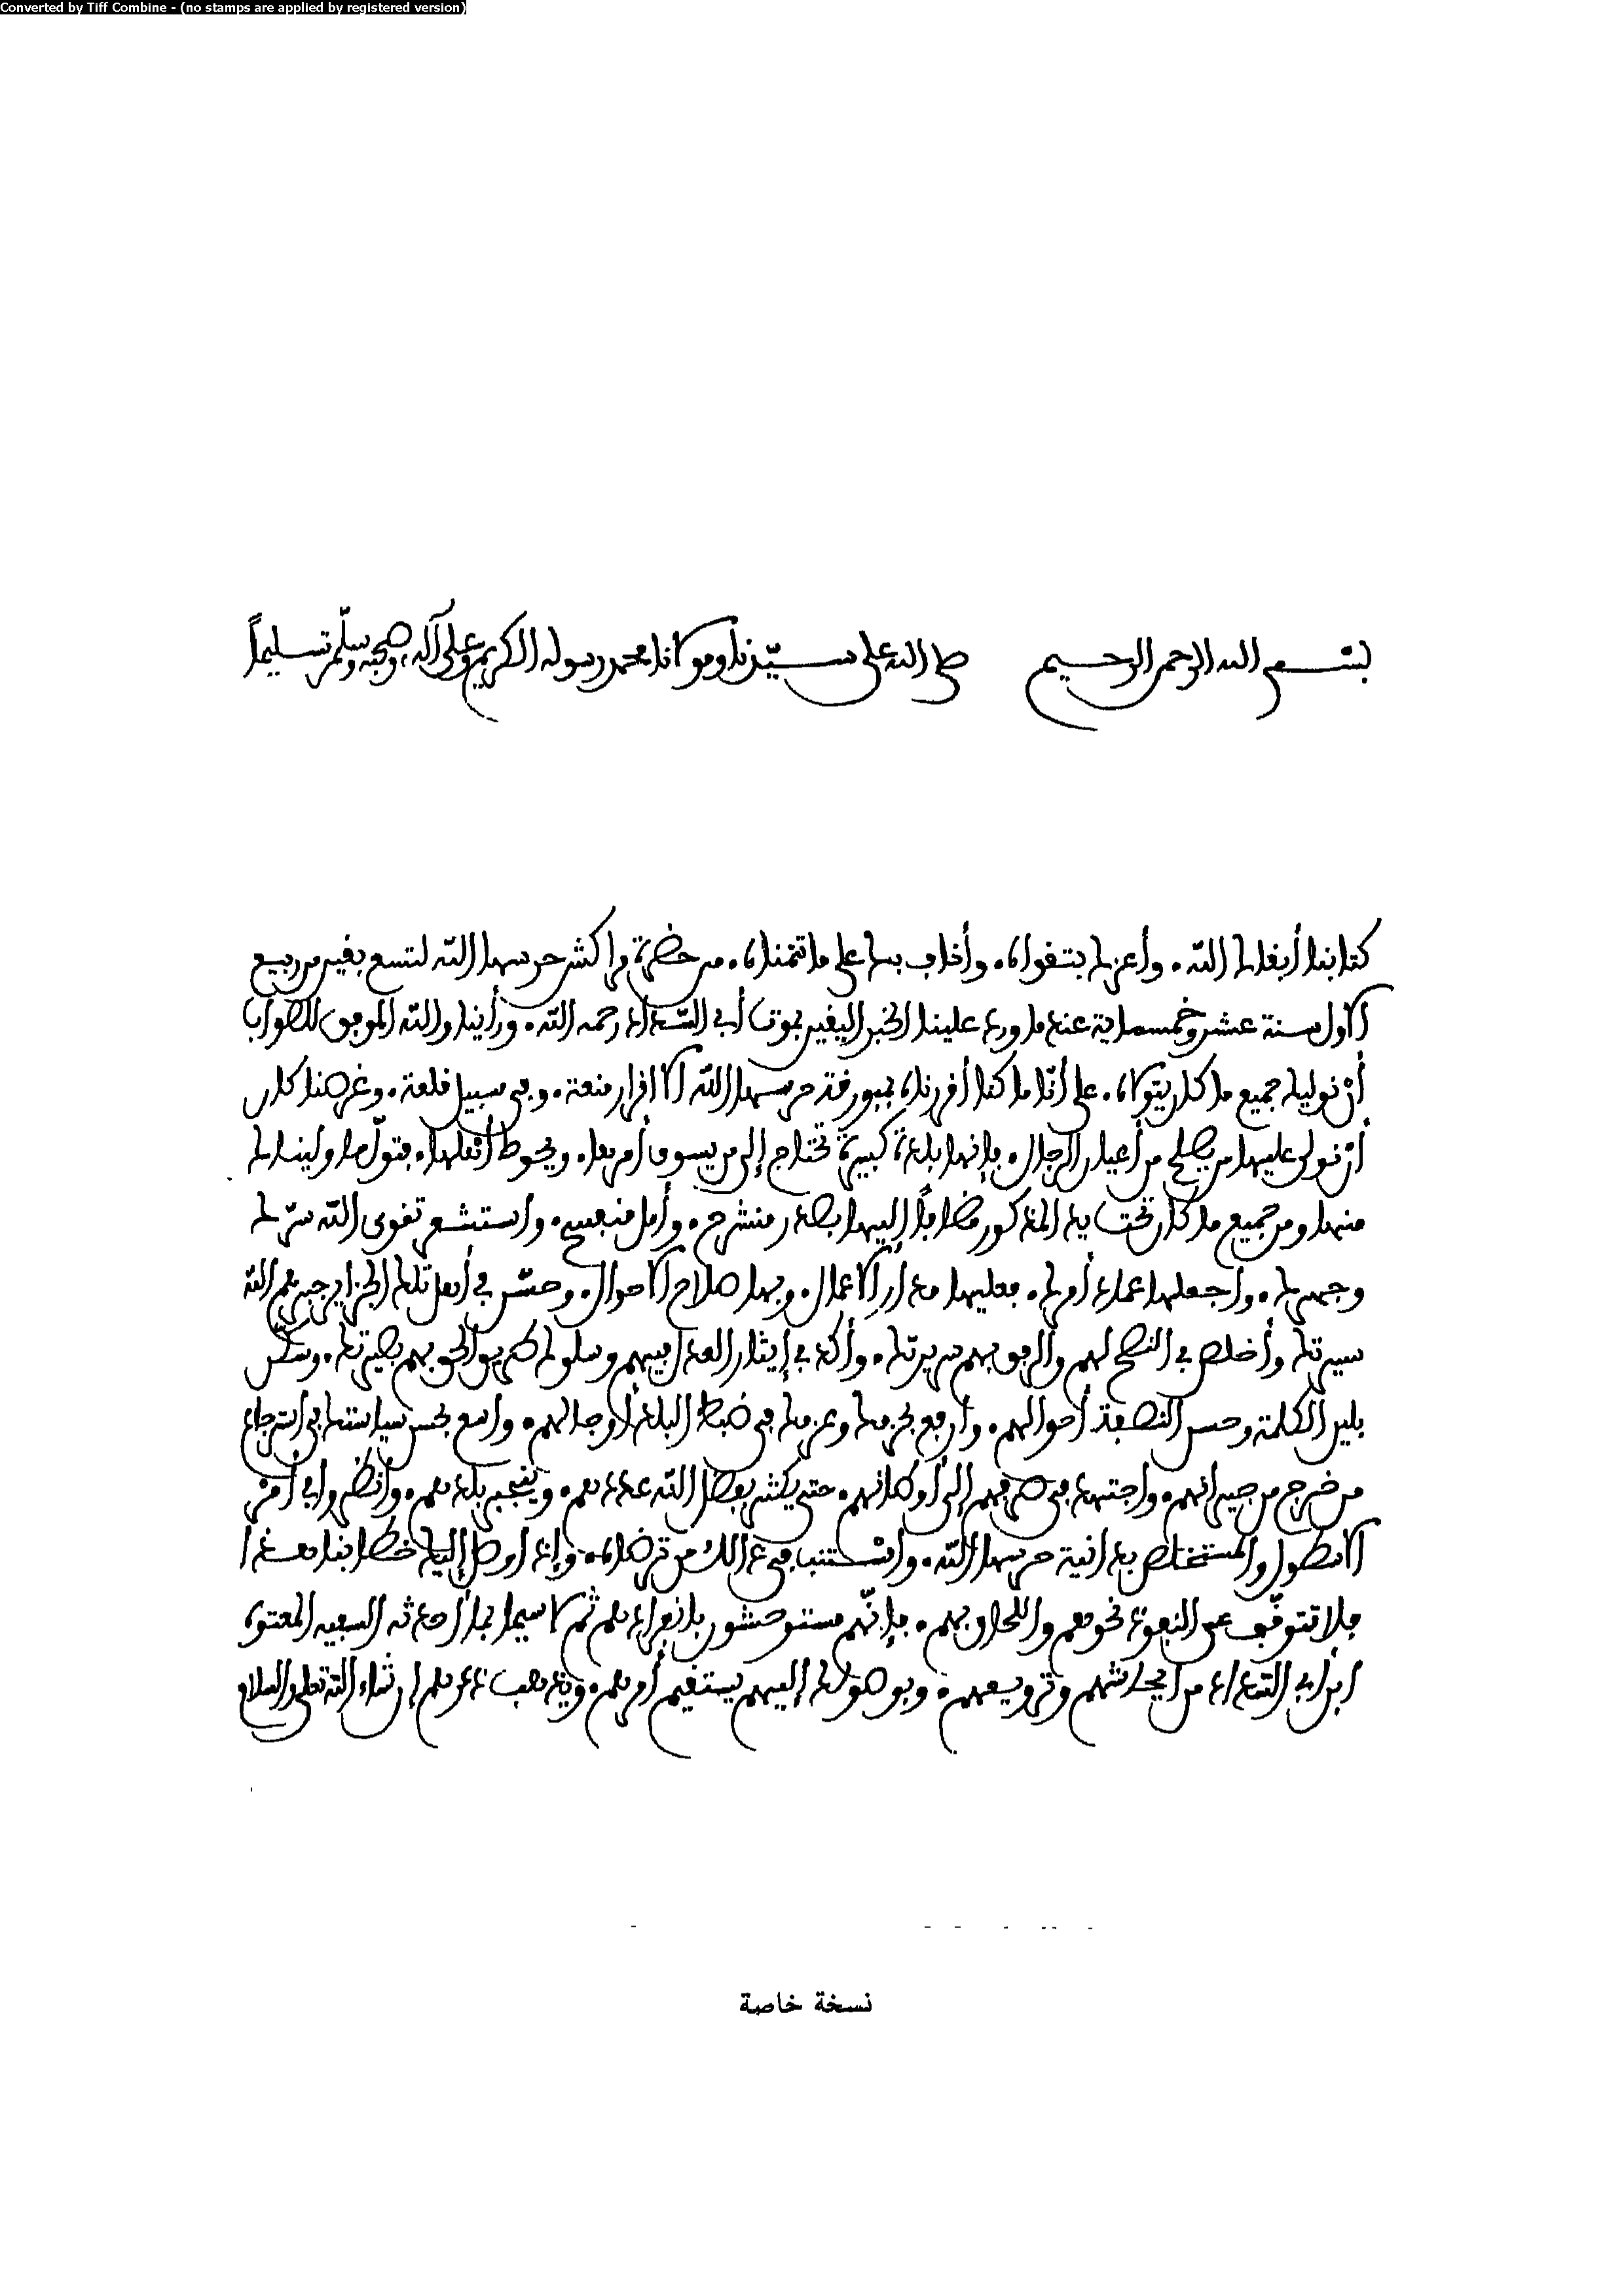 Converted by Tiff Combine - (no stamps are applied by registered version)
بسم الله الرحمن الرحيم صلى الله على سيّدنا ومولانا محمد رسوله الكريم وعلى آله وصحبه وسلّم تسليماً
كتابنا أبقاك اللّه. وأعزك بتقواه. وأجراك بما على ما تتمناه. من حضرة مراكش حرسها اللّه لتسع بقين من ربيع
الأول سنة عشر وخمسماية عندما ورد علينا الخبر اليقين بموت أبي السّداد رحمه اللّه. ورأينا واللّه الموفق للصواب
أن نوليك جميع ما كان يتولاه. على أنّا ما كنا أفردناه بميورقة حرسها اللّه إلا إفراد منعة. وفي سبيل قلعة. وغرضنا كان
أن نولي عليها من يصلح من أعيان الرجال. فإنها بلدة كبيرة تحتاج إلى من يسوق أمرها. ويحوط أهلها. فتولّ ما وليناك
منها ومن جميع ما كان تحت يد المذكور مضافاً إليها بصدر منشرح. وأمل منفسح. واستشعر تقوى اللّه سرّك
وجهرك. واجعلها عماد أمرك. فعليها مدار الأعمال. وبها صلاح الأحوال. وحسّن في أهل تلك الجزاير جبرهم اللّه
سيرتك وأخلص في النصح لهم والرفق بهم سريرتك. وأكد في إيثار العدل فيهم وسلوك طريق الحق بهم بصيرتك. وسكّن
بلين الكلمة وحسن النصفة أحوالهم. وارفع بحزمك وعزمك في ضبط البلد أوجالهم. واسع بحسن سياستك في استرجاع
من خرج من جيرانهم. واجتهد في صرفهم إلى أوطانهم. حتى يكثر بفضل اللّه عددهم. وينجبر بلدهم. وانظر في أمر
الأسطول والمستخلص بدانية حرسها اللّه. واستنب في ذالك من ترضاه. وإذا وصل إليك خطابنا هذا
فلا تتوقّف عن النفوذ نحوهم واللحاق بهم. فإنّهم مستوحشون بانفرادهم ثم لا سيما بما أحدثه السفيه المعتوه
ابن أبي السّداد من إيحاشهم وترويعهم. وبوصولك إليهم يستقيم أمرهم. ويذهب ذعرهم إن شاء اللّه تعلى والسلام
نسخة خاصة